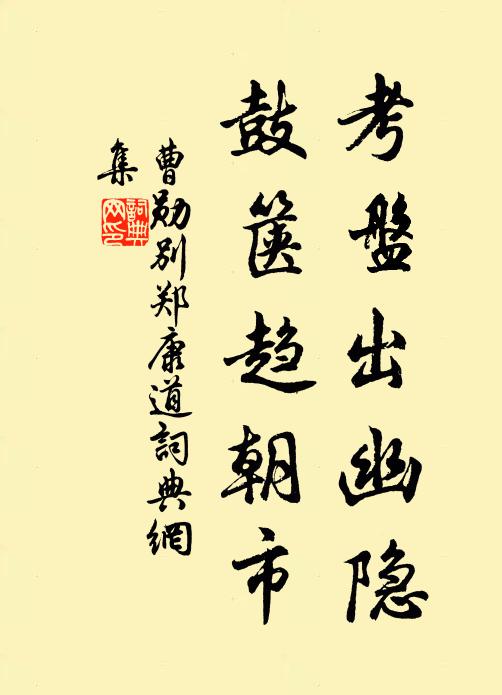 考盤出幽隐
鼓箧趋朝市
曹勋别郑康道詞典網
集
詞典网印